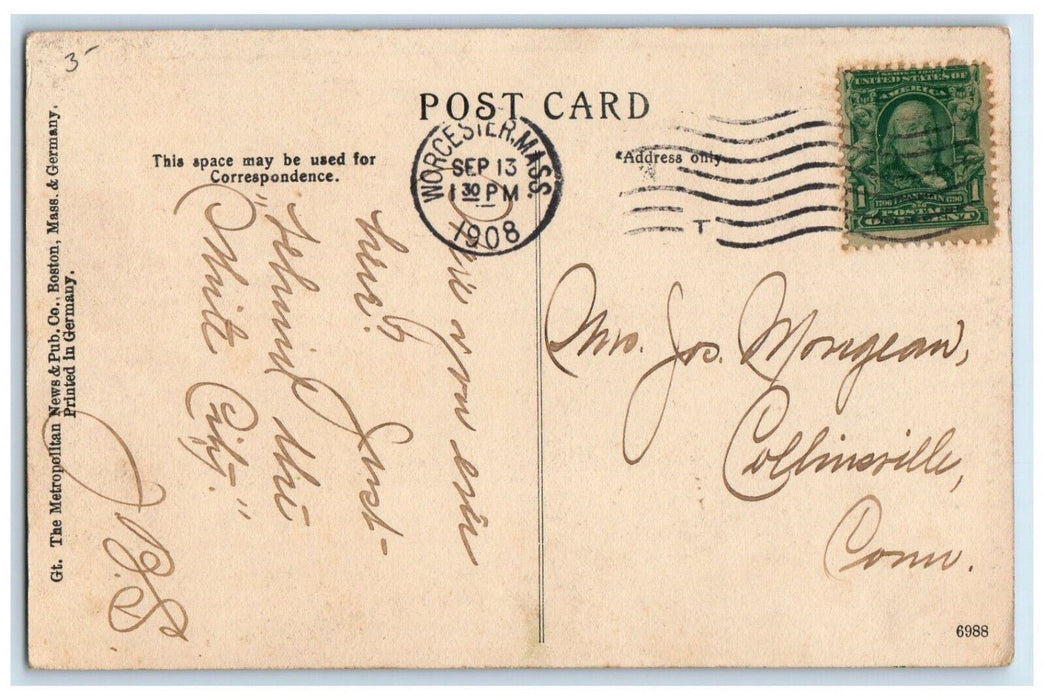 3-
POST CARD
This space may be used for
Correspondence.
*Address only
WORCESTER, MASS.
SEP 13
1 30 PM
1908
T
SERIES 1902
UNITED STATES OF
AMERICA
1 1
1706 FRANKLIN 1790
POSTAGE
ONE CENT
Gt. The Metropolitan News & Pub. Co., Boston, Mass. & Germany.
Printed in Germany.
you ever
here? Just-
behind the
"White City."
J. G. S
Mrs. Jos. Morigeau,
Collinsville,
Conn.
6988